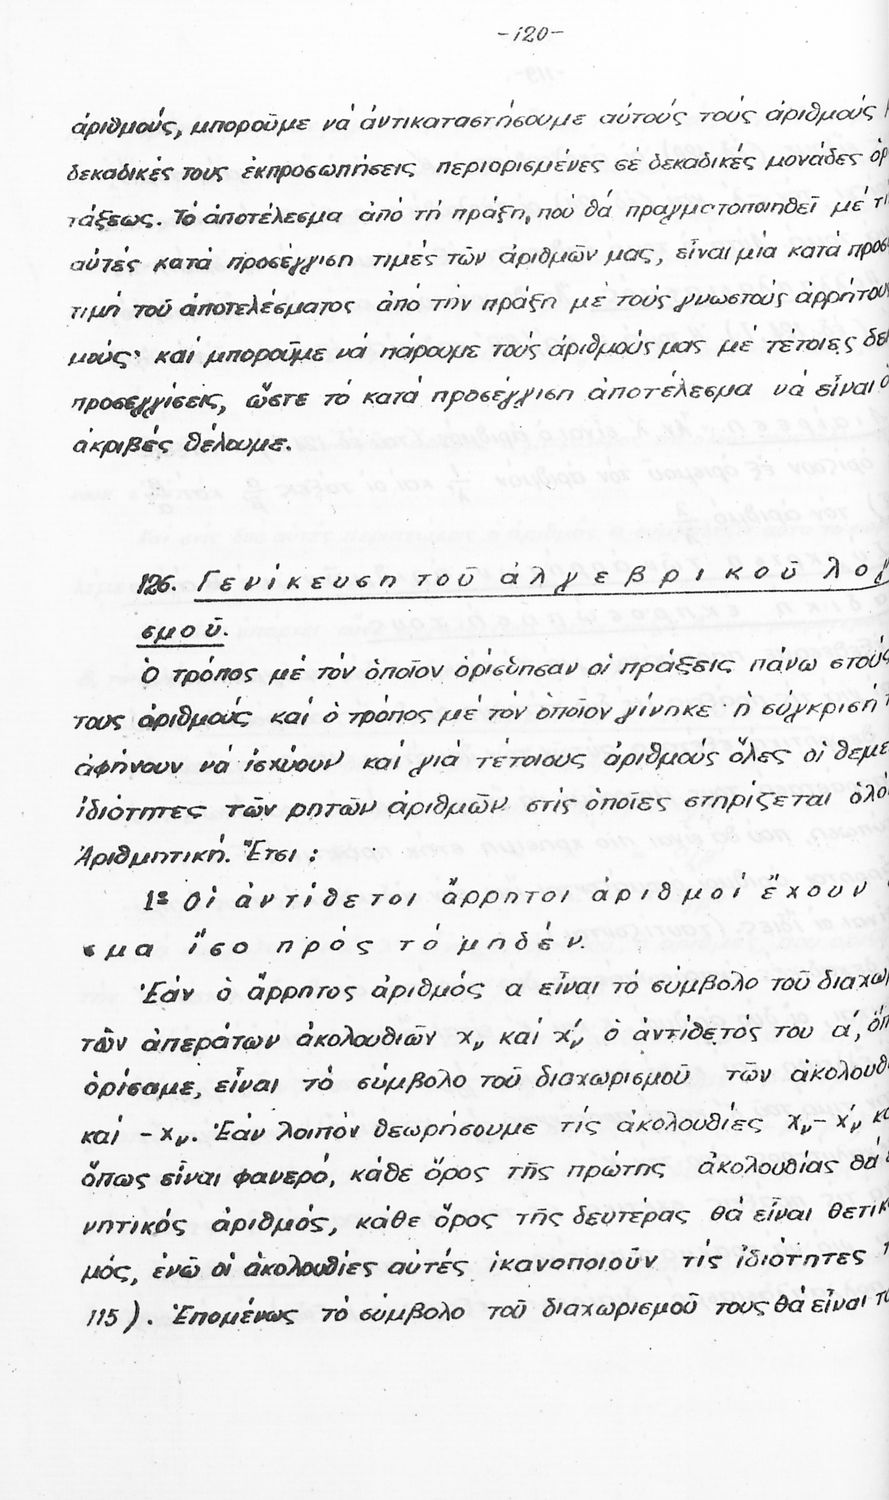 -120-
ἀριθμούς, μποροῦμε νά ἀντικαταστήσουμε αὐτούς τούς ἀριθμούς
δεκαδικές τους ἐκπροσωπήσεις περιορισμένες σέ δεκαδικές μονάδες ὁρ
τάξεως. Τό ἀποτέλεσμα ἀπό τή πράξη, πού θά πραγματοποιηθεῖ μέ τί
αὐτές κατά προσέγγιση τιμές τῶν ἀριθμῶν μας, εἶναι μία κατά προσ
τιμή τοῦ ἀποτελέσματος ἀπό τήν πράξη μέ τούς γνωστούς ἀρρήτου
μούς· καί μποροῦμε νά πάρουμε τούς ἀριθμούς μας μέ τέτοιες δε
προσεγγίσεις, ὥστε τό κατά προσέγγιση ἀποτέλεσμα νά εἶναι ὅ
ἀκριβές θέλουμε.
126. Γενίκευση τοῦ ἀλγεβρικοῦ λογ
σμοῦ.
Ὁ τρόπος μέ τόν ὁποῖον ὁρίσθησαν οἱ πράξεις πάνω στούς
τους ἀριθμούς καί ὁ τρόπος μέ τόν ὁποῖον γίνηκε ἡ σύγκρισή τ
ἀφήνουν νά ἰσχύουν καί γιά τέτοιους ἀριθμούς ὅλες οἱ θεμε
ἰδιότητες τῶν ρητῶν ἀριθμῶν στίς ὁποῖες στηρίζεται ὁλό
Ἀριθμητική. Ἔτσι :
1º Οἱ ἀντίθετοι ἄρρητοι ἀριθμοί ἔχουν
σμα ἴσο πρός τό μηδέν.
Ἐάν ὁ ἄρρητος ἀριθμός α εἶναι τό σύμβολο τοῦ διαχωρ
τῶν ἀπεράτων ἀκολουθιῶν xᵥ καί x′ᵥ ὁ ἀντίθετός του α′, ὅπ
ὁρίσαμε, εἶναι τό σύμβολο τοῦ διαχωρισμοῦ τῶν ἀκολουθ
καί -xᵥ. Ἐάν λοιπόν θεωρήσουμε τίς ἀκολουθίες xᵥ-x′ᵥ κα
ὅπως εἶναι φανερό, κάθε ὅρος τῆς πρώτης ἀκολουθίας θά ε
νητικός ἀριθμός, κάθε ὅρος τῆς δευτέρας θά εἶναι θετικ
μός, ἐνῶ οἱ ἀκολουθίες αὐτές ἱκανοποιοῦν τίς ἰδιότητες
115). Ἑπομένως τό σύμβολο τοῦ διαχωρισμοῦ τους θά εἶναι τό